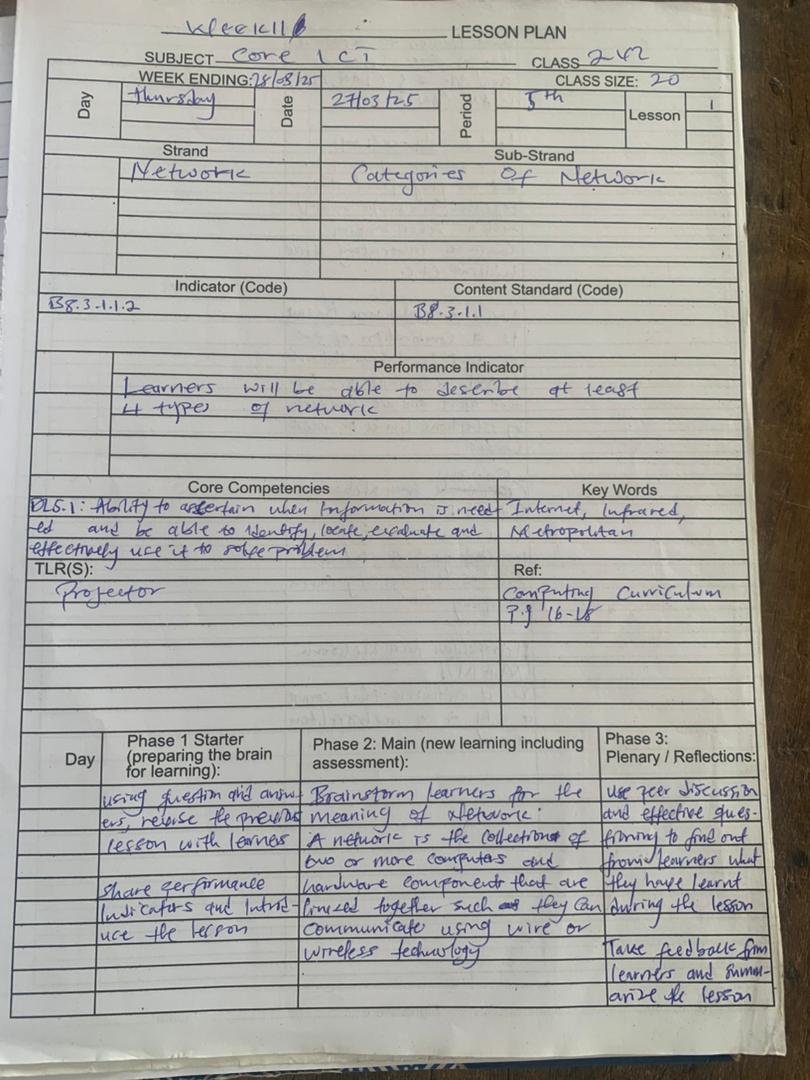 Week 11
LESSON PLAN
SUBJECT Core ICT
CLASS
WEEK ENDING: 28/03/25
CLASS SIZE: 20
Day
Thursday
Date
27/03/25
Period
5th
Lesson
1
Strand
Sub-Strand
Network
Categories Of Network
Indicator (Code)
Content Standard (Code)
B8.3.1.1.2
B8.3.1.1
Performance Indicator
Learners will be able to describe at least
4 types of network
Core Competencies
Key Words
DL5.1: Ability to ascertain when information is need-
ed and be able to identify, locate, evaluate and
effectively use it to solve problem
Internet, Infrared,
Metropolitan
TLR(S):
Ref:
Projector
Computing Curriculum
P.g 16-18
Day
Phase 1 Starter
(preparing the brain
for learning):
Phase 2: Main (new learning including
assessment):
Phase 3:
Plenary / Reflections:
using question and answ-
ers, revise the previous
lesson with learners
share performance
Indicators and Introd-
uce the lesson
Brainstorm learners for the
meaning of Network.
A network is the collection of
two or more computers and
hardware components that are
linked together such as they can
communicate using wire or
wireless technology
Use peer discussion
and effective ques-
tioning to find out
from learners what
they have learnt
during the lesson
Take feedback from
learners and summ-
arize the lesson